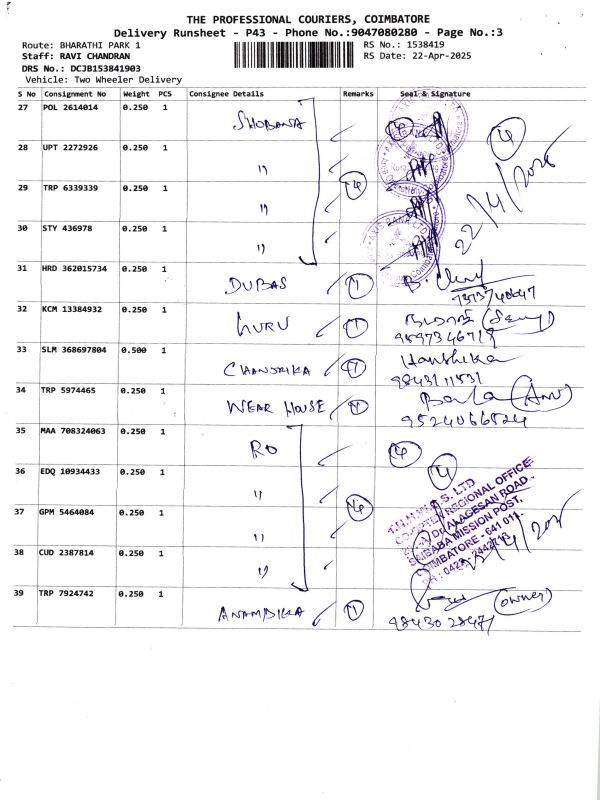 THE PROFESSIONAL COURIERS, COIMBATORE
Delivery Runsheet - P43 - Phone No.:9047080280 - Page No.:3
Route: BHARATHI PARK 1 RS No.: 1538419
Staff: RAVI CHANDRAN RS Date: 22-Apr-2025
DRS No.: DCJB153841903
Vehicle: Two Wheeler Delivery
S No Consignment No Weight PCS Consignee Details Remarks Seal & Signature
27 POL 2614014 0.250 1 SHOBANA 4 4
28 UPT 2272926 0.250 1 "
29 TRP 6339339 0.250 1 " 4 22/4/2025
30 STY 436978 0.250 1 "
31 HRD 362015734 0.250 1 DUBAS 1
32 KCM 13384932 0.250 1 GURU 1
33 SLM 368697804 0.500 1 CHANDRIKA 1 Harshika
9843111531
34 TRP 5974465 0.250 1 WEAR HOUSE 1 Bala
9524066524
35 MAA 708324063 0.250 1 RO 4
36 EDQ 10934433 0.250 1 " 4
37 GPM 5464084 0.250 1 " 4
REGIONAL OFFICE
ALAGESAN ROAD
SAIBABA MISSION POST,
COIMBATORE - 641 011
38 CUD 2387814 0.250 1 "
39 TRP 7924742 0.250 1 ANAMBIKA 1 (owner)
984302847